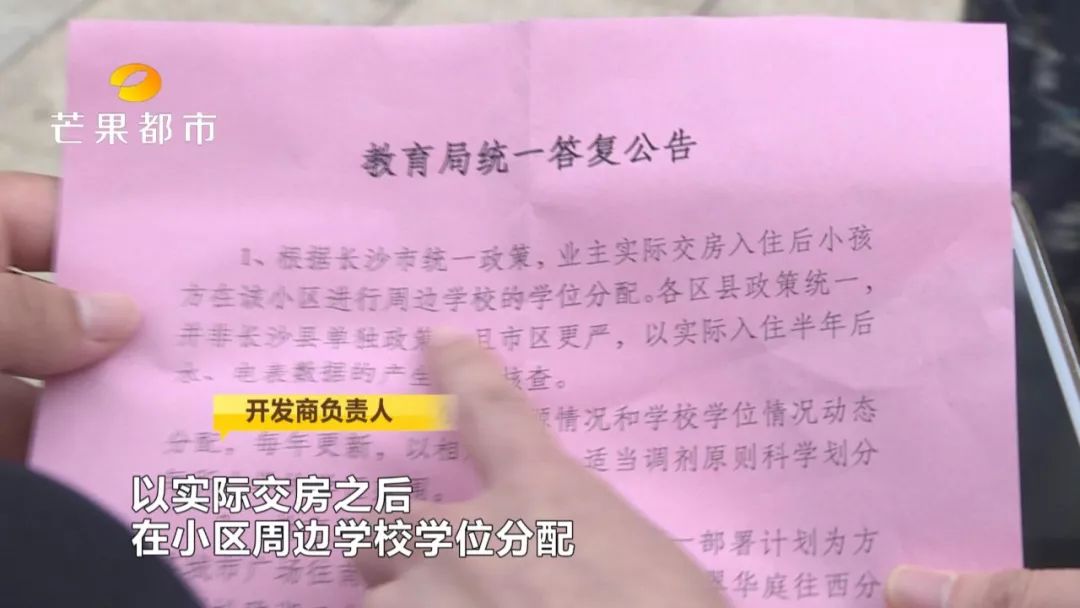 芒果都市
教育局统一答复公告
1、根据长沙市统一政策，业主实际交房入住后小孩
方在该小区进行周边学校的学位分配。各区县政策统一，
并非长沙县单独政策 且市区更严，以实际入住半年后
水、电表数据的产生 核查。
开发商负责人
情况和学校学位情况动态
分配，每年更新，以相 适当调剂原则科学划分
以实际交房之后
在小区周边学校学位分配
一部署计划为方
城市广场往南
华庭往西分